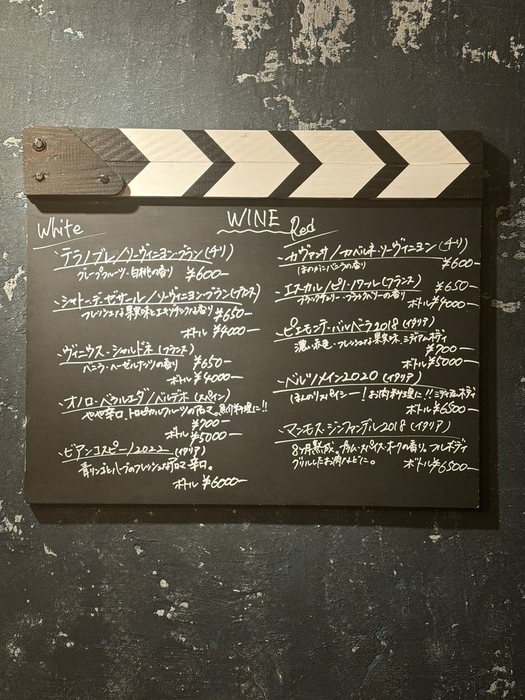 WINE
White
・テラノブレ/ソーヴィニヨン・ブラン(チリ)
グレープフルーツ・白桃の香り ¥600-
・シャトー・デ・ゼサール/ソーヴィニヨン・ブラン(フランス)
フレッシュな果実味とエキゾチックな香り ¥650-
ボトル ¥4000-
・ヴィニウス・シャルドネ(フランス)
バニラ・ヘーゼルナッツの香り ¥650-
ボトル ¥4000-
・オノロ・ベラ/ルエダ/ベルデホ(スペイン)
やや辛口、トロピカルフルーツのアロマ。魚介料理に!!
¥900-
ボトル ¥5000-
・ビアンコスピーノ2022(イタリア)
青リンゴとハーブのフレッシュなアロマ 辛口。
ボトル ¥6000-
Red
・カヴァンザ/カベルネ・ソーヴィニヨン(チリ)
ほのかにバニラの香り ¥600-
・エスカル/ピノ・ノワール(フランス) ¥650-
ブラックチェリー・ブラックベリーの香り ボトル ¥4000-
・ピエモンテ・バルベーラ2018(イタリア)
濃い赤色・フレッシュな果実味 ミディアムボディ
¥900-
ボトル ¥5000-
・ベルツメイン2020(イタリア)
ほんのりスパイシー!お肉料理に!!ミディアムボディ
ボトル ¥6500-
・マンモス・ジンファンデル2018(イタリア)
8ヶ月熟成。プラム・スパイス・オークの香り。フルボディ
グリルしたお肉などに。 ボトル ¥6500-